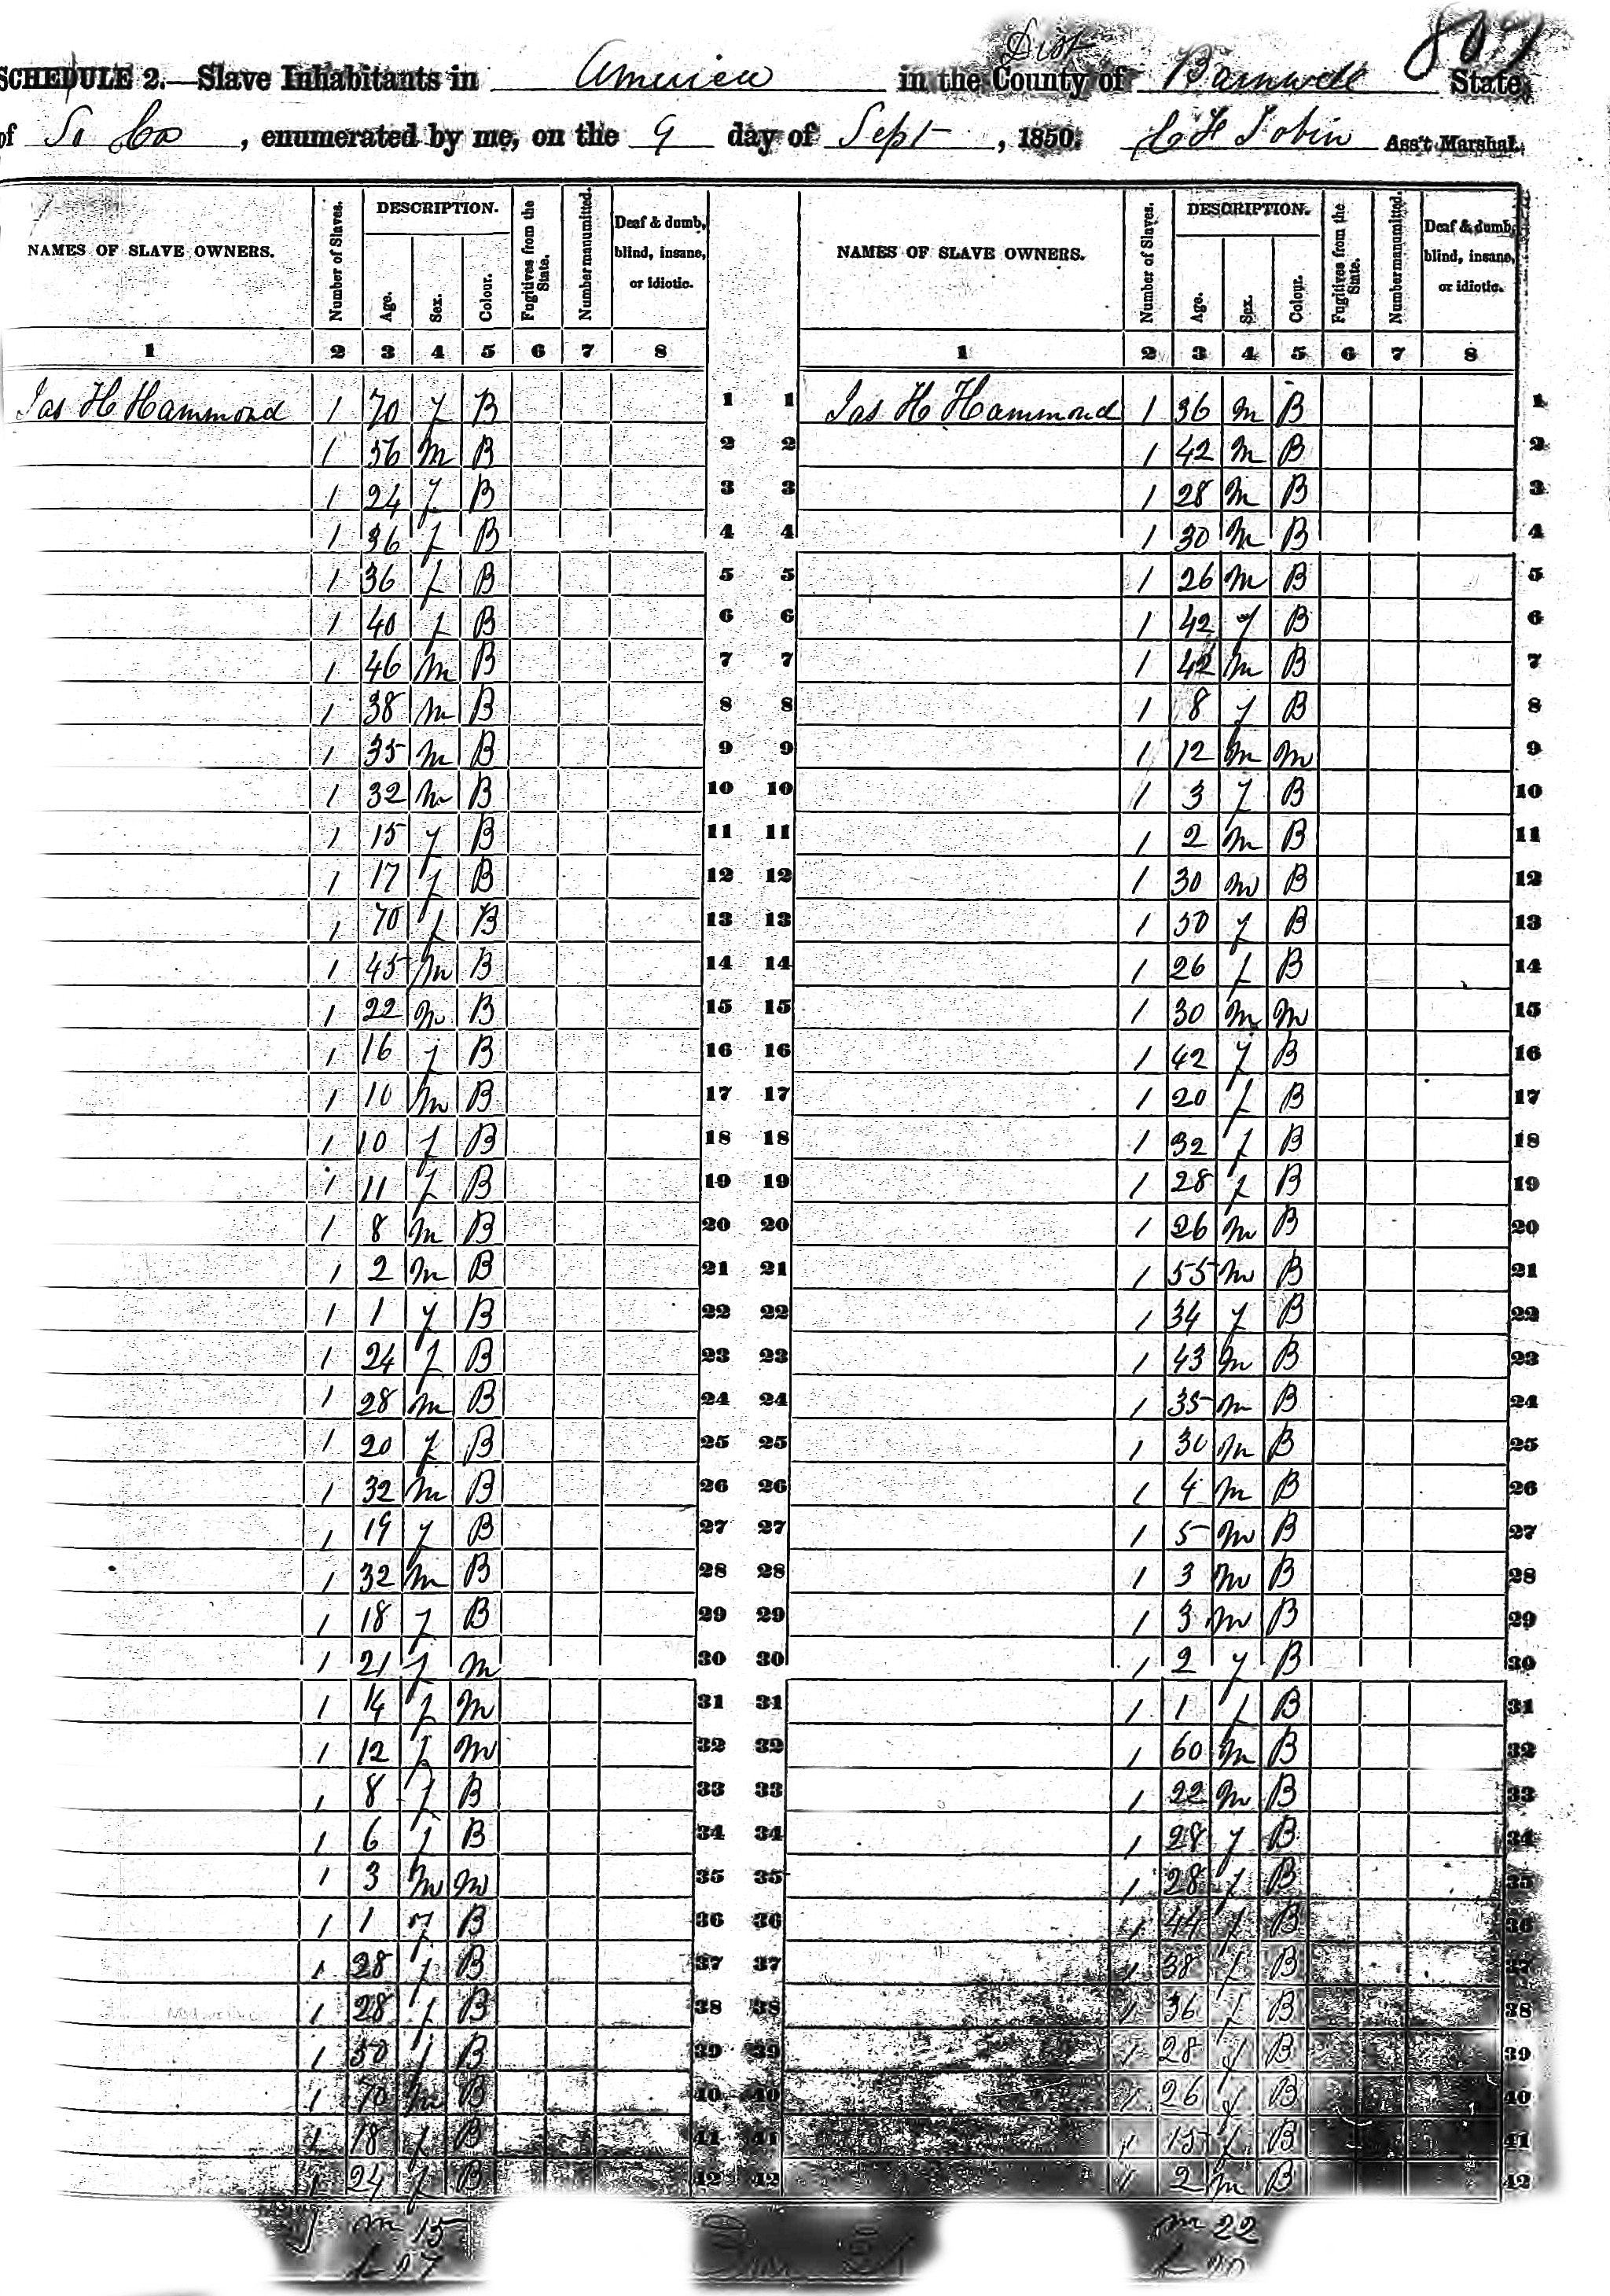 807
Dist
SCHEDULE 2.—Slave Inhabitants in America in the County of Barnwell State
of So Ca, enumerated by me, on the 9 day of Sept, 1850. Ass't Marshal.
NAMES OF SLAVE OWNERS. Number of Slaves. DESCRIPTION. Age. Sex. Colour. Fugitives from the State. Number manumitted. Deaf & dumb, blind, insane, or idiotic. NAMES OF SLAVE OWNERS. Number of Slaves. DESCRIPTION. Age. Sex. Colour. Fugitives from the State. Number manumitted. Deaf & dumb, blind, insane, or idiotic.
1 2 3 4 5 6 7 8 1 2 3 4 5 6 7 8
Jas H Hammond 1 70 f B 1 1 Jas H Hammond 1 36 m B 1
1 56 m B 2 2 1 42 m B 2
1 24 f B 3 3 1 28 m B 3
1 36 f B 4 4 1 30 m B 4
1 36 f B 5 5 1 26 m B 5
1 40 f B 6 6 1 42 f B 6
1 46 m B 7 7 1 42 m B 7
1 38 m B 8 8 1 8 f B 8
1 35 m B 9 9 1 12 m m 9
1 32 m B 10 10 1 3 f B 10
1 15 f B 11 11 1 2 m B 11
1 17 f B 12 12 1 30 m B 12
1 70 f B 13 13 1 50 f B 13
1 45 m B 14 14 1 26 f B 14
1 22 m B 15 15 1 30 m m 15
1 16 f B 16 16 1 42 f B 16
1 10 m B 17 17 1 20 f B 17
1 10 f B 18 18 1 32 f B 18
1 11 f B 19 19 1 28 f B 19
1 8 m B 20 20 1 26 m B 20
1 2 m B 21 21 1 55 m B 21
1 1 f B 22 22 1 34 f B 22
1 24 f B 23 23 1 43 m B 23
1 28 m B 24 24 1 35 m B 24
1 20 f B 25 25 1 30 m B 25
1 32 m B 26 26 1 4 m B 26
1 19 f B 27 27 1 5 m B 27
1 32 m B 28 28 1 3 m B 28
1 18 f B 29 29 1 3 m B 29
1 21 f m 30 30 1 2 f B 30
1 14 f m 31 31 1 1 f B 31
1 12 f m 32 32 1 60 m B 32
1 8 f B 33 33 1 22 m B 33
1 6 f B 34 34 1 28 f B 34
1 3 m m 35 35 1 28 f B 35
1 1 f B 36 36 1 44 f B 36
1 28 f B 37 37 1 38 f B 37
1 28 f B 38 38 1 36 f B 38
1 50 f B 39 39 1 28 f B 39
1 70 m B 40 40 1 26 f B 40
1 18 f B 41 41 1 15 f B 41
1 24 f B 42 42 1 2 m B 42
m 15 m 22
f 27 f 20